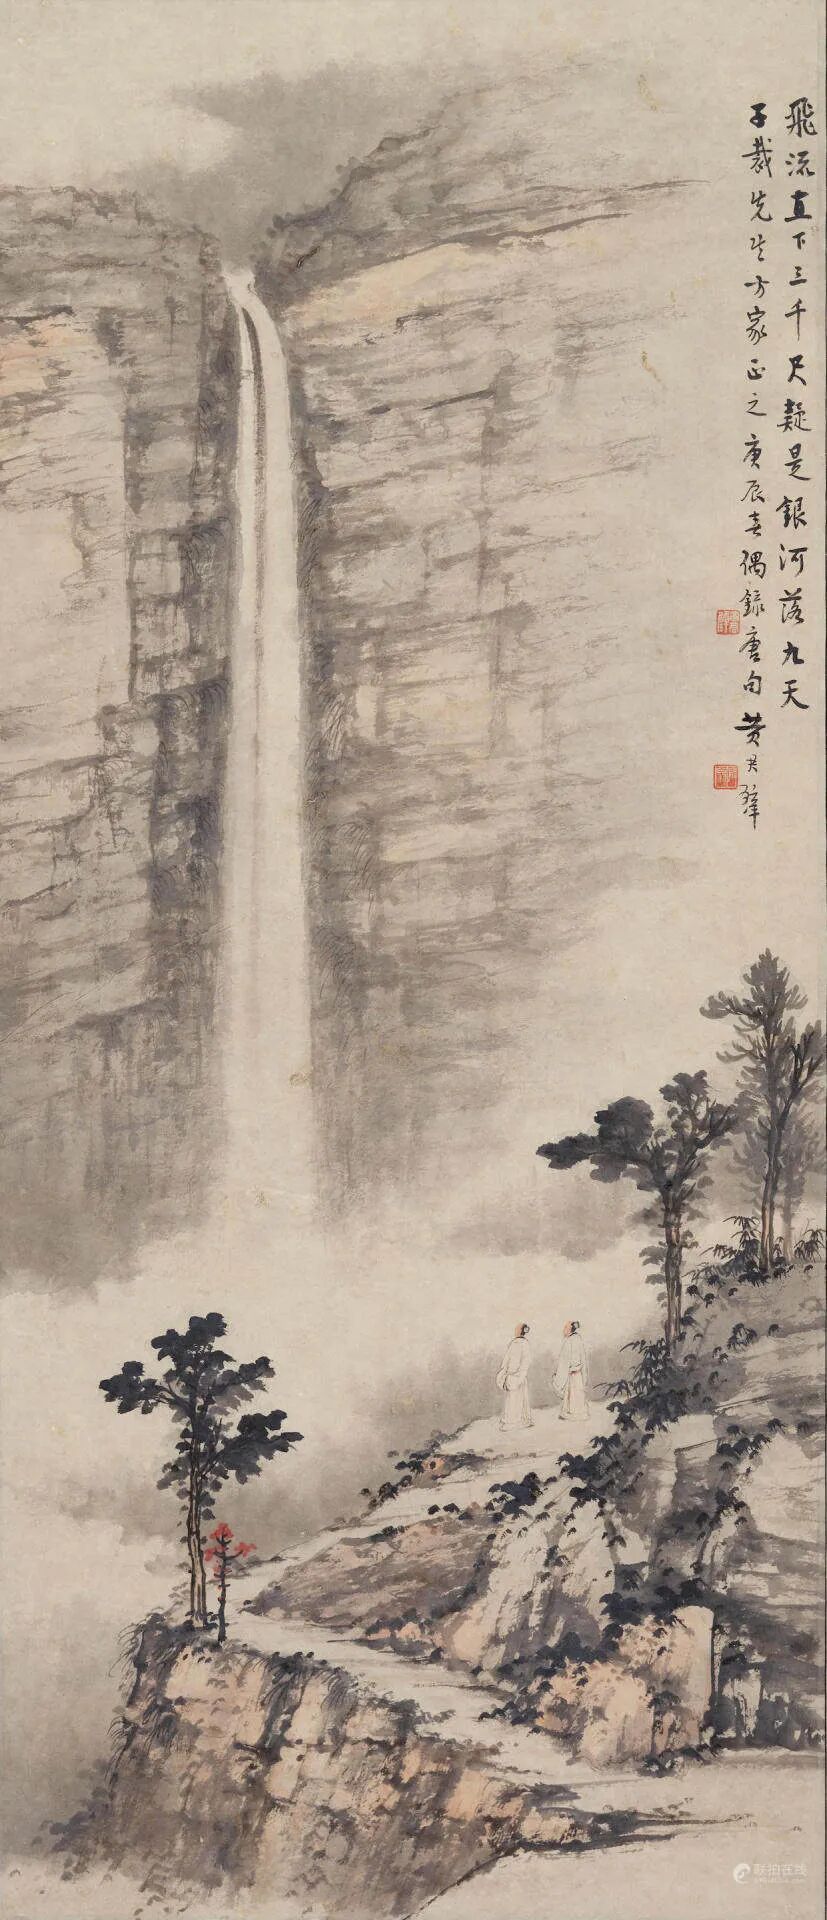 飛流直下三千尺疑是銀河落九天
子裁先生方家正之庚辰春偶錄唐句黄君璧
联拍在线